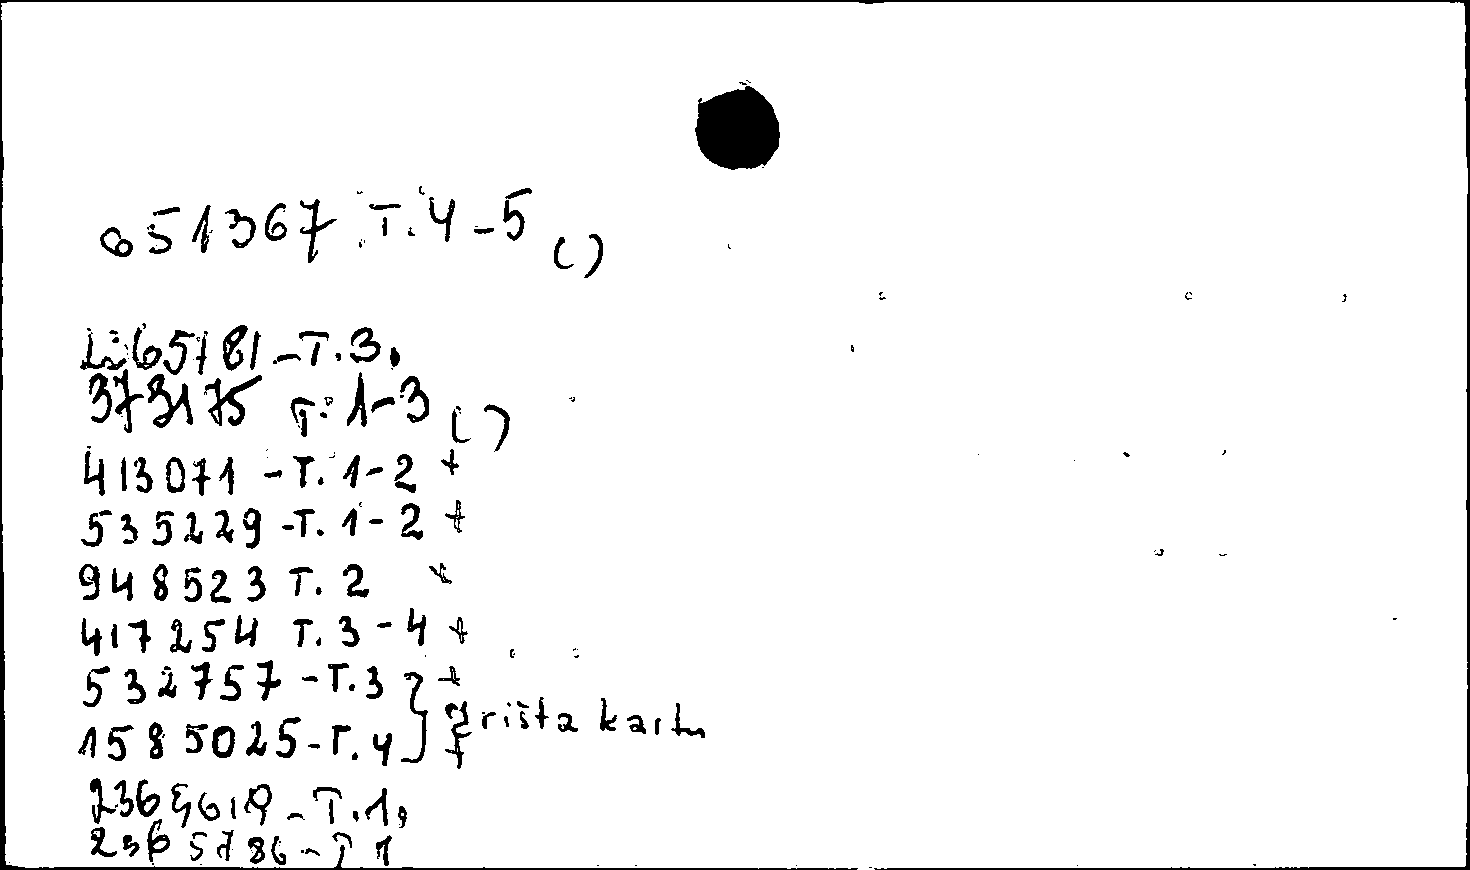 651367 T.4-5 ( )
2265181-T.3.
373175 T. 1-3 ( )
413071 -T. 1-2 +
535229-T. 1-2 +
948523 T. 2 +
417254 T. 3-4 +
532757-T.3 } +
1585025-T.4 } + įrišta kartu
2365619-T.1,
2365786-T 1